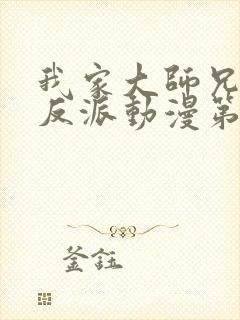 我家大師兄
反派動漫第
釜鈺